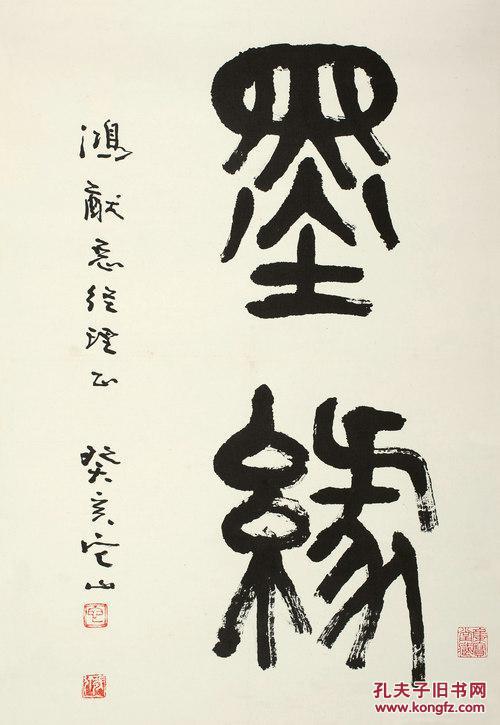 墨緣
鴻總經理正 癸亥山
孔夫子旧书网
www.kongfz.com